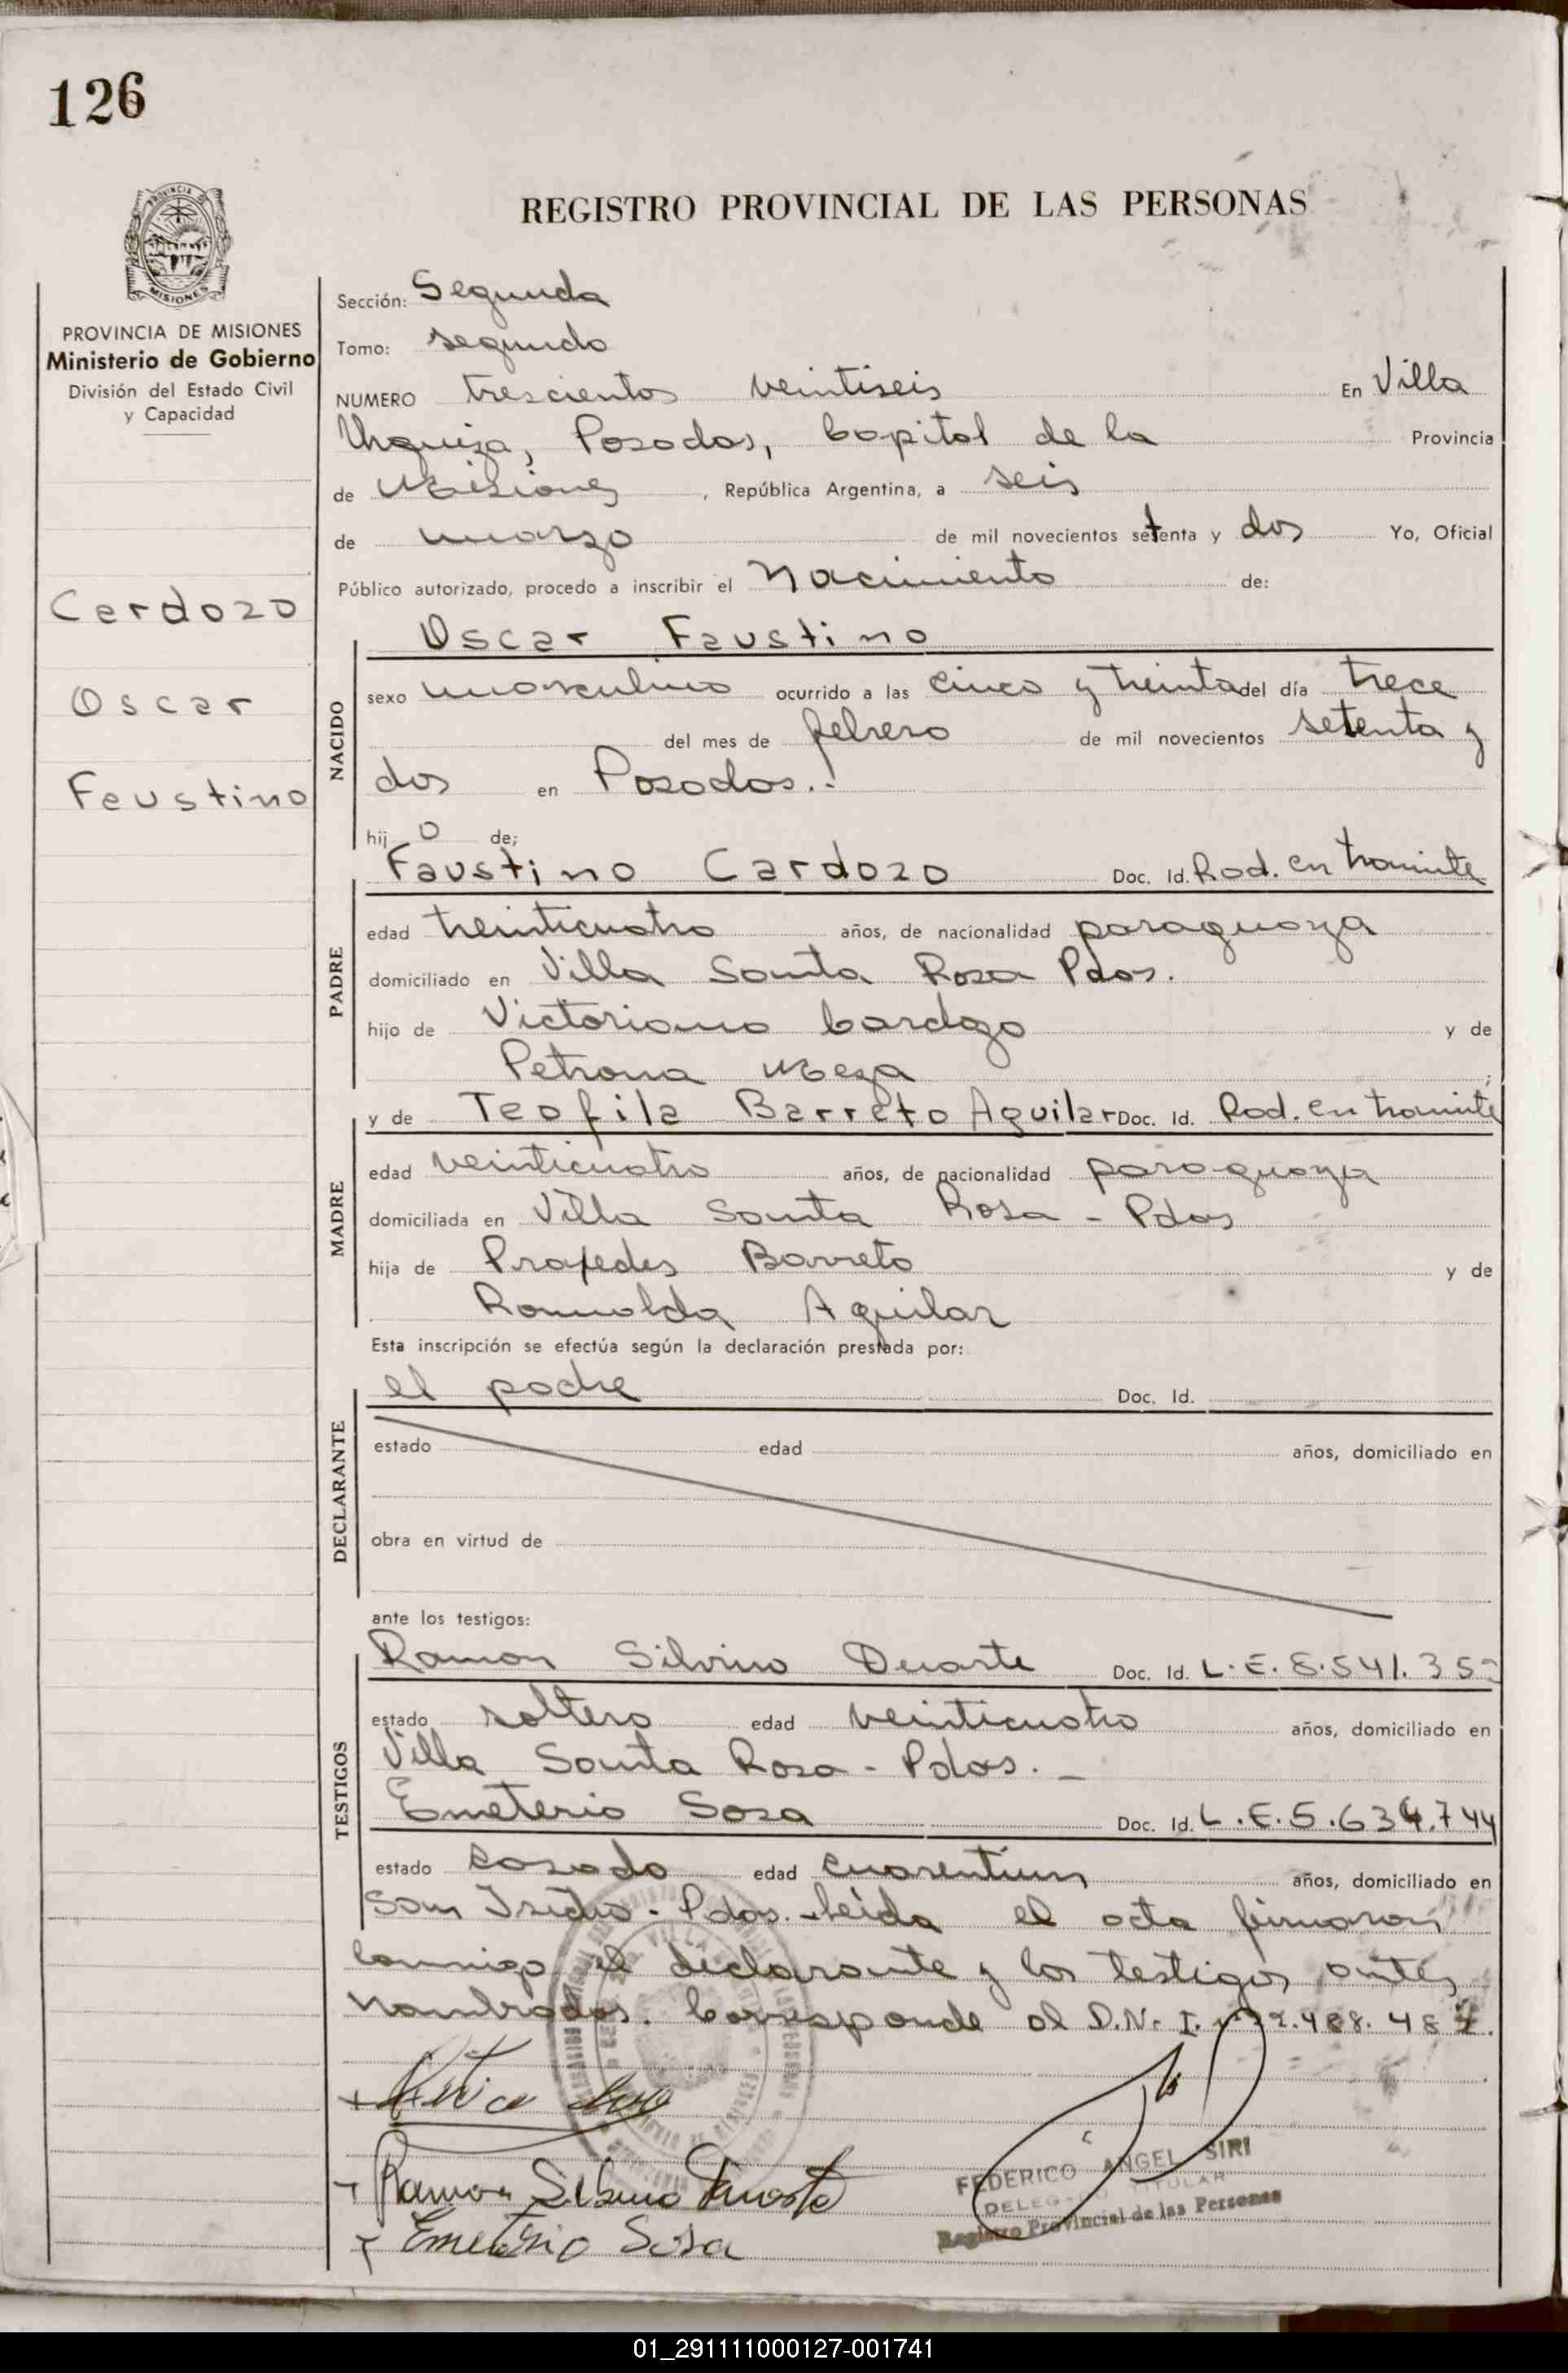 126
PROVINCIA
MISIONES
REGISTRO PROVINCIAL DE LAS PERSONAS
PROVINCIA DE MISIONES
Ministerio de Gobierno
División del Estado Civil
y Capacidad
Cardozo
Oscar
Faustino
Sección: Segunda
Tomo: segundo
NUMERO trescientos veintiseis En Villa
Urquiza, Posadas, Capital de la Provincia
de Misiones, República Argentina, a seis
de marzo de mil novecientos setenta y dos Yo, Oficial
Público autorizado, procedo a inscribir el Nacimiento de:
Oscar Faustino
NACIDO
sexo masculino ocurrido a las cinco y treinta del día trece
del mes de febrero de mil novecientos setenta y
dos en Posadas.-
hijo de;
Faustino Cardozo Doc. Id. Rad. en tramite
PADRE
edad treinticuatro años, de nacionalidad paraguaya
domiciliado en Villa Santa Rosa Pdas.
hijo de Victoriano Cardozo y de
Petrona Meza;
y de Teofila Barreto Aguilar Doc. Id. Rad. en tramite
MADRE
edad veinticuatro años, de nacionalidad paraguaya
domiciliada en Villa Santa Rosa - Pdas
hija de Prajedes Barreto y de
Romualda Aguilar
Esta inscripción se efectúa según la declaración prestada por:
el padre Doc. Id.
DECLARANTE
estado edad años, domiciliado en
obra en virtud de
ante los testigos:
Ramon Silvino Duarte Doc. Id. L.E. 8.541.35
TESTIGOS
estado soltero edad veinticuatro años, domiciliado en
Villa Santa Rosa - Pdas. -
Emeterio Sosa Doc. Id. L.E. 5.634.744
estado casado edad cuarentiun años, domiciliado en
San Isidro - Pdas. Leida el acta firmaron
conmigo el declarante y los testigos antes
nombrados. Corresponde al D.N.I.
Ramon Silvino Duarte
Emeterio Sosa
FEDERICO ANGEL SIRI
DELEGADO TITULAR
Registro Provincial de las Personas
01_291111000127-001741